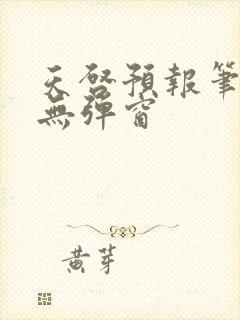 天啓預報筆
無彈窗
黃芽